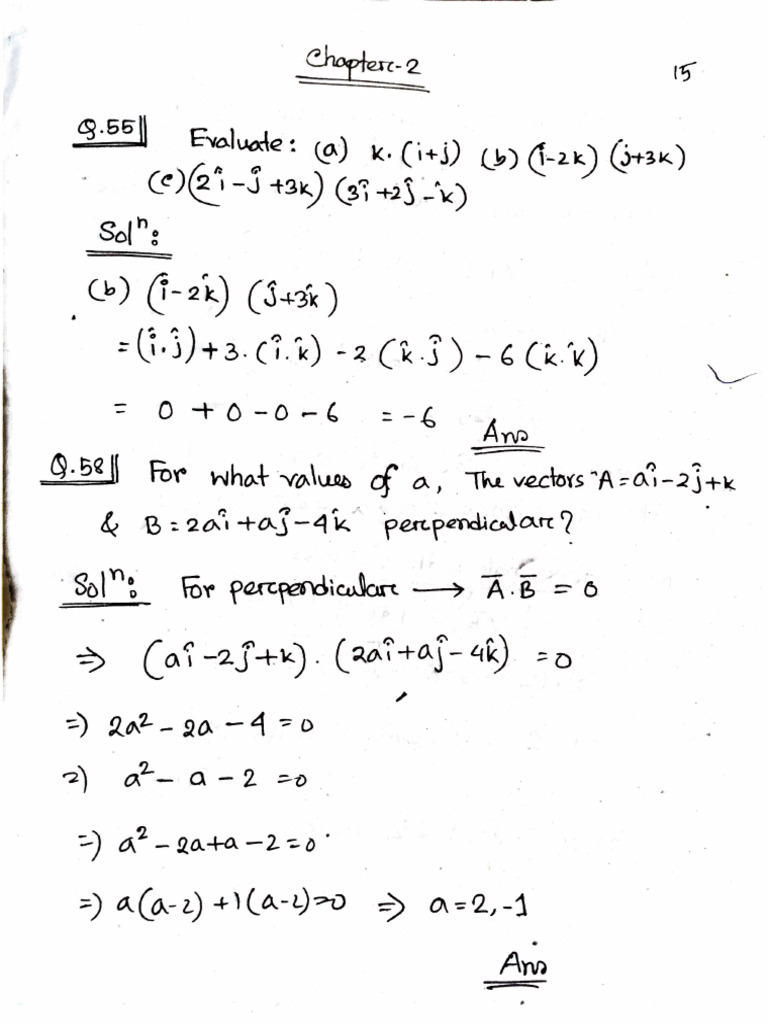 Chapterc-2
15
Q.55|| Evaluate: (a) k.(i+j) (b) (î-2k) (j+3k)
(c) (2î-ĵ+3k) (3î+2ĵ-k̂)
Solⁿ:
(b) (î-2k̂) (ĵ+3k̂)
=(î.ĵ)+3.(î.k̂) -2(k̂.ĵ) -6(k̂.k̂)
= 0 + 0 - 0 - 6 = -6
Ans
Q.58|| For what values of a, The vectors A=aî-2ĵ+k
& B=2aî+aĵ-4k̂ percpendicularc?
Solⁿ: For percpendicularc → A̅.B̅ = 0
⇒ (aî-2ĵ+k).(2aî+aĵ-4k̂) =0
=) 2a²-2a-4=0
=) a²-a-2=0
=) a²-2a+a-2=0
=) a(a-2)+1(a-2)=0 ⇒ a=2,-1
Ans